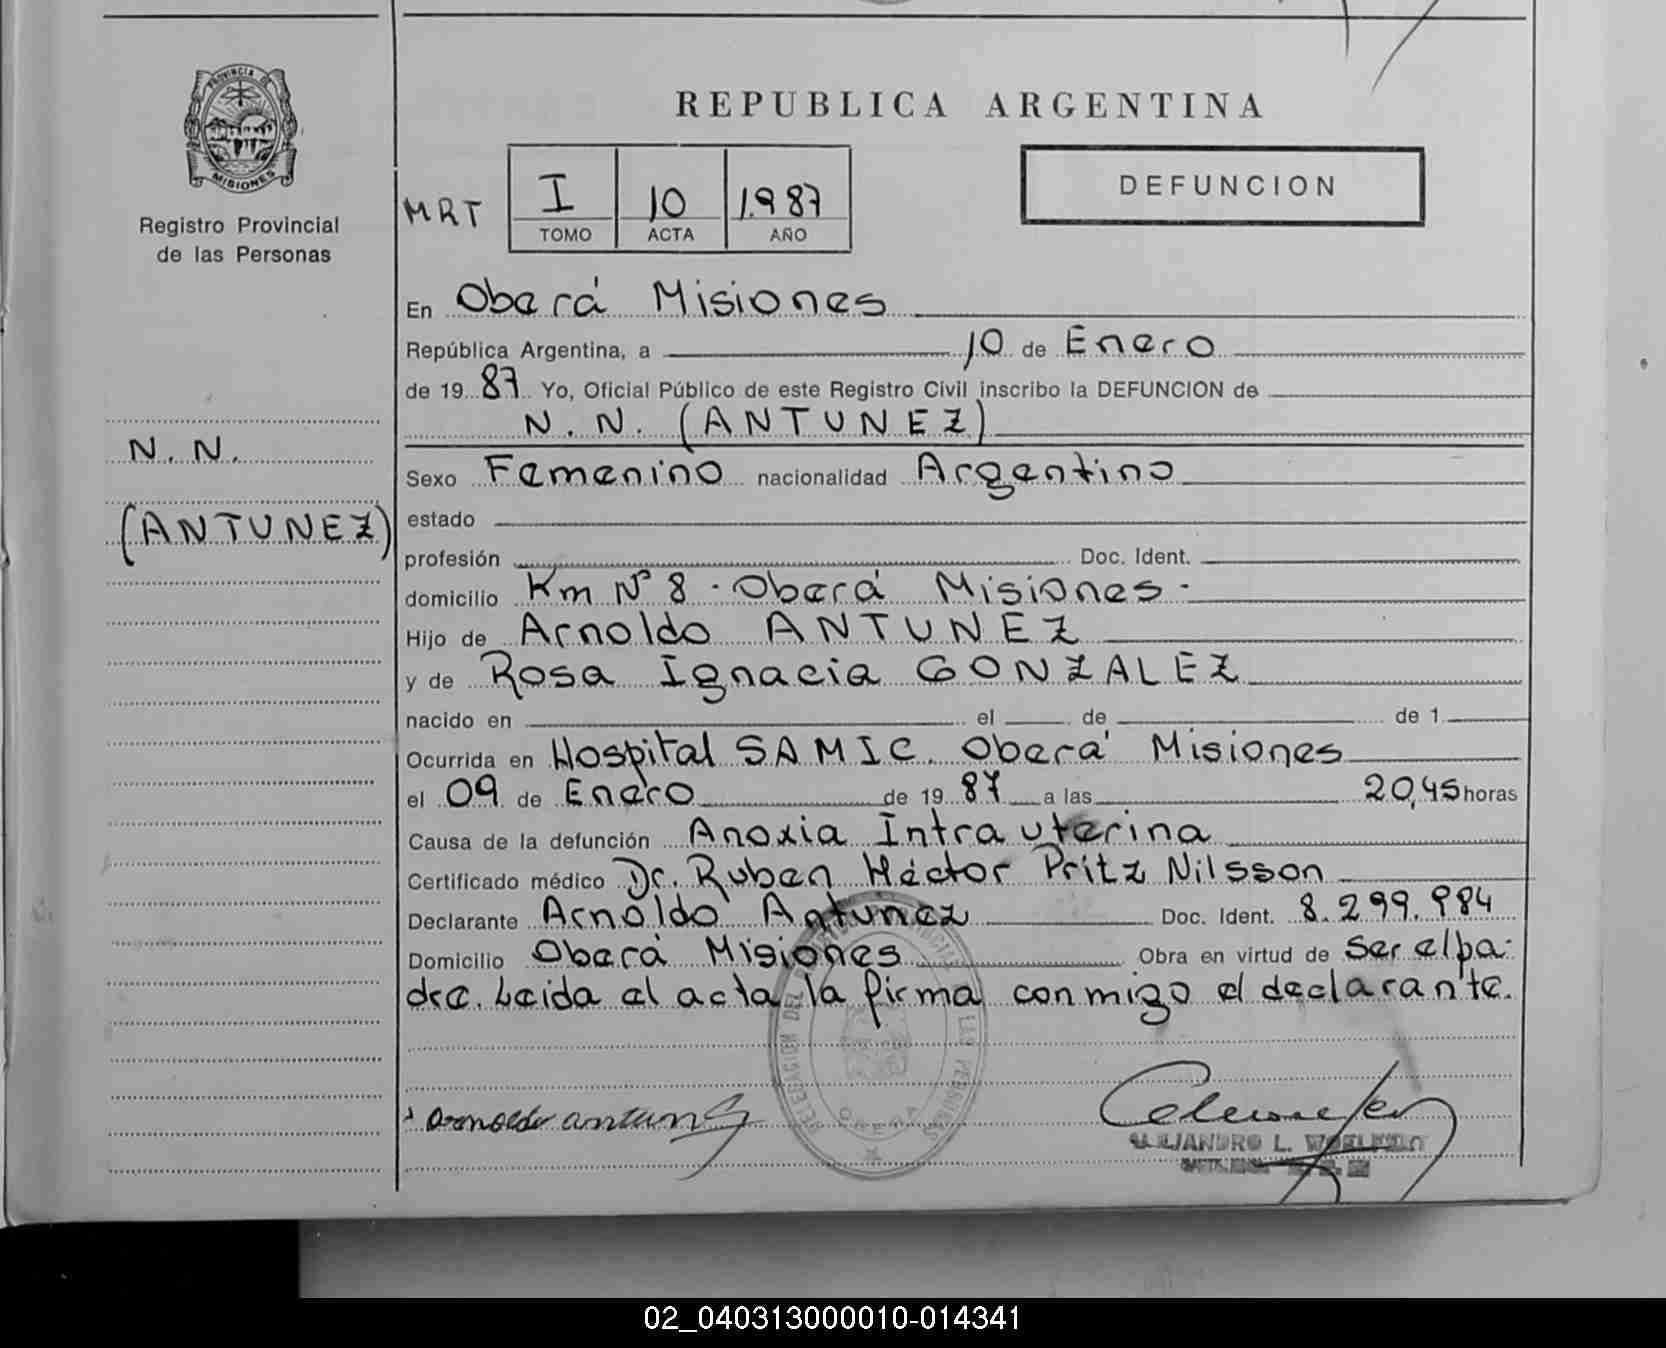 PROVINCIA DE
MISIONES
Registro Provincial
de las Personas
N. N.
(ANTUNEZ)
REPUBLICA ARGENTINA
MRT
I 10 1.987
TOMO ACTA AÑO
DEFUNCION
En Oberá Misiones
República Argentina, a 10 de Enero
de 19 87 Yo, Oficial Público de este Registro Civil inscribo la DEFUNCION de
N. N. (ANTUNEZ)
Sexo Femenino nacionalidad Argentino
estado
profesión Doc. Ident.
domicilio Km Nº 8 - Oberá Misiones -
Hijo de Arnoldo ANTUNEZ
y de Rosa Ignacia GONZALEZ
nacido en el de de 1
Ocurrida en Hospital SAMIC. Oberá Misiones
el 09 de Enero de 19 87 a las 20,45 horas
Causa de la defunción Anoxia Intra uterina
Certificado médico Dr. Ruben Héctor Pritz Nilsson
Declarante Arnoldo Antunez Doc. Ident. 8.299.984
Domicilio Oberá Misiones Obra en virtud de Ser el pa-
dre. Leida el acta la firma conmigo el declarante.
arnoldo antunez
DELEGACION DEL REGISTRO PROVINCIAL DE LAS PERSONAS
OBERA
ALEJANDRO L.
02_040313000010-014341